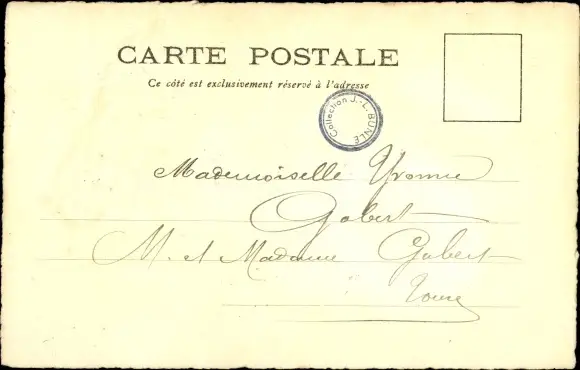 CARTE POSTALE
Ce côté est exclusivement réservé à l'adresse
Collection J.-L. BUNLE
Mademoiselle Yvonne
Gobert
M. et Madame Gobert